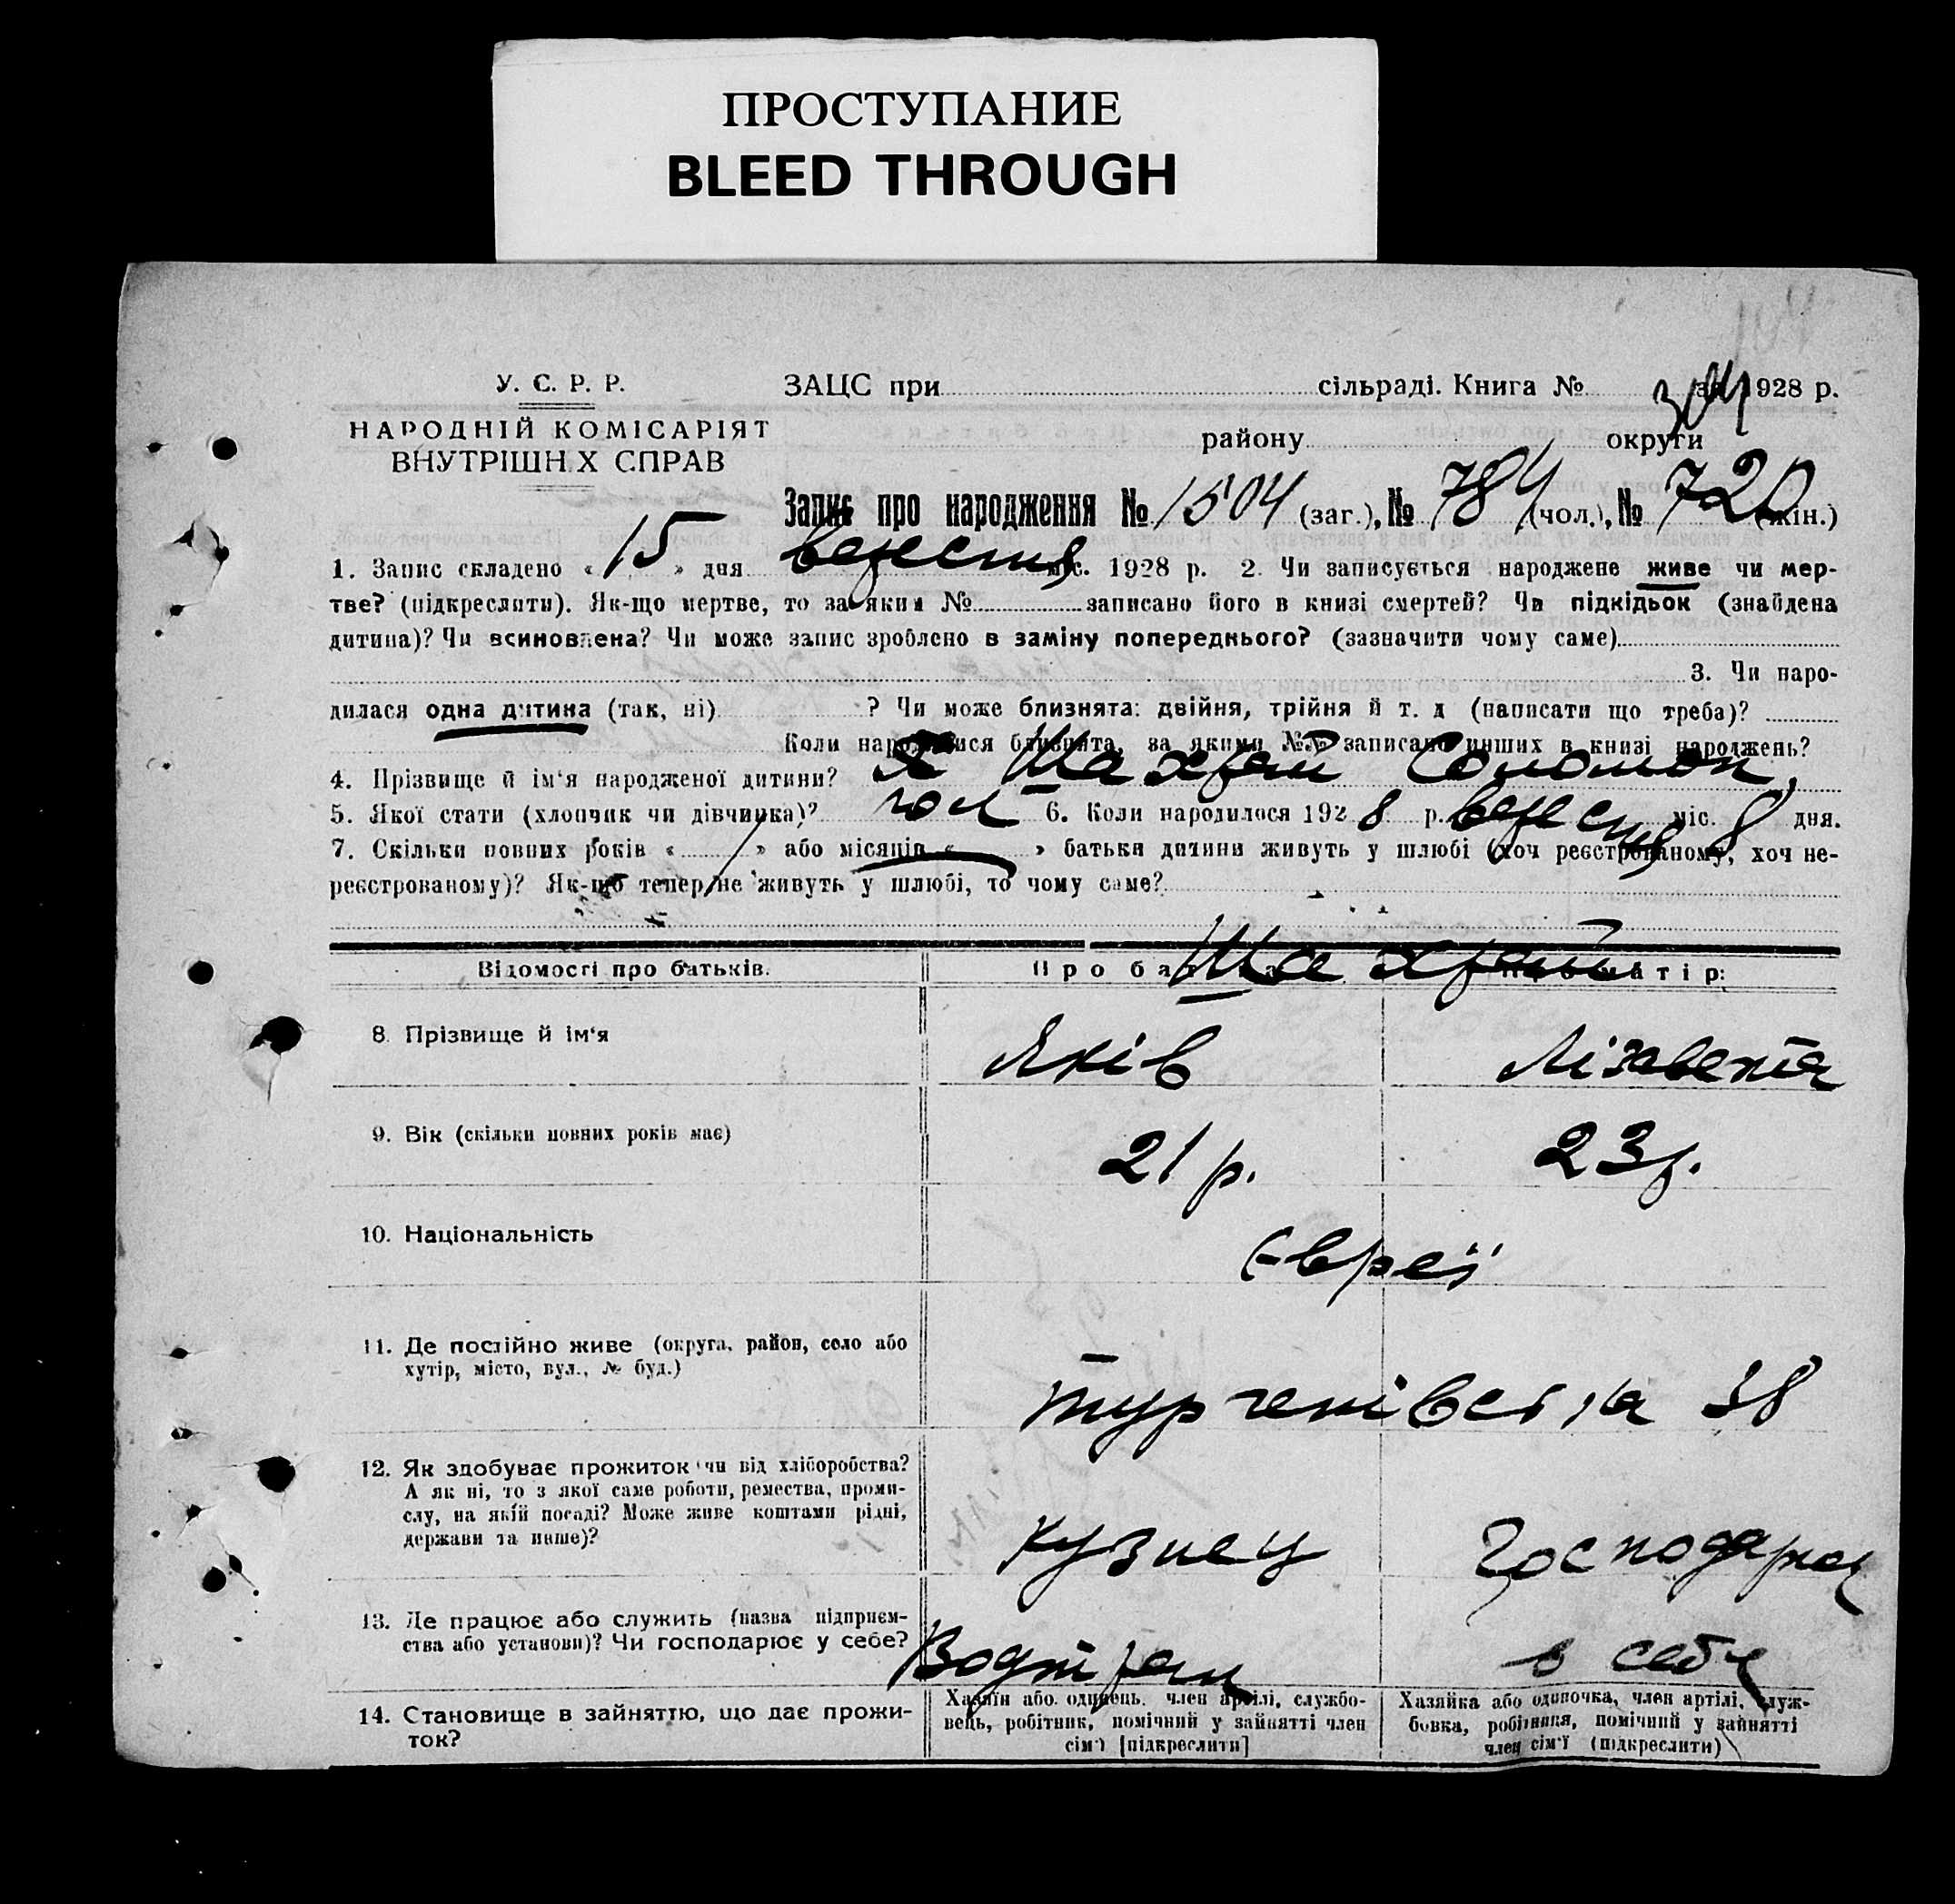 ПРОСТУПАНИЕ
BLEED THROUGH
У. С. Р. Р.
НАРОДНІЙ КОМІСАРІЯТ
ВНУТРІШНІХ СПРАВ
ЗАЦС при сільраді. Книга № за 1928 р.
району округи
Запис про народження № 1504 (заг.), № 784 (чол.), № 720 (жін.)
1. Запис складено « 15 » дня вересня міс. 1928 р. 2. Чи записується народжене живе чи мер-
тве? (підкреслити). Як-що мертве, то за яким № записано його в книзі смертей? Чи підкідьок (знайдена
дитина)? Чи всиновлена? Чи може запис зроблено в заміну попереднього? (зазначити чому саме)
3. Чи наро-
дилася одна дитина (так, ні) ? Чи може близнята: двійня, трійня й т. д (написати що треба)?
Коли народилися близнята, за якими №№ записано инших в книзі народжень?
4. Прізвище й ім'я народженої дитини? Шахрай Соломон
5. Якої стати (хлопчик чи дівчинка)? чол 6. Коли народилося 1928 р. вересня міс. 8 дня.
7. Скільки повних років « » або місяців « » батьки дитини живуть у шлюбі (хоч реєстрованому, хоч не-
реєстрованому)? Як-що тепер не живуть у шлюбі, то чому саме?
Відомості про батьків. Про батька Шахрай Про матір:
8. Прізвище й ім'я Яків Лізавета
9. Вік (скільки повних років має) 21 р. 23 р.
10. Національність Євреї
11. Де постійно живе (округа, район, село або
хутір, місто, вул., № буд.)
38
12. Як здобуває прожиток чи від хліборобства?
А як ні, то з якої саме роботи, ремества, проми-
слу, на якій посаді? Може живе коштами рідні,
держави та инше)?
кузнец Господарка
13. Де працює або служить (назва підприєм-
ства або установи)? Чи господарює у себе?
Водтран в себе
14. Становище в зайняттю, що дає прожи-
ток?
Хазяїн або одинець, член артілі, службо-
вець, робітник, помічний у зайнятті член
сім'ї [підкреслити]
Хазяйка або одиночка, член артілі, служ-
бовка, робітниця, помічний у зайнятті
член сім'ї (підкреслити)